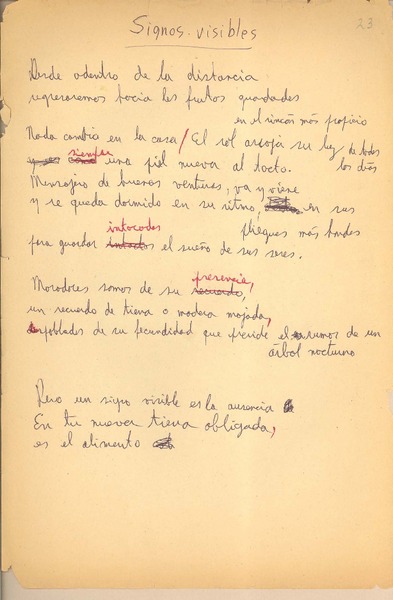 23
Signos visibles
Desde adentro de la distancia
regresaremos hacia los frutos guardados
en el rincón más propicio
Nada cambia en la casa / El sol arroja su luz de todos
los días
siempre
una piel nueva al tacto.
Mensajero de buenas venturas, va y viene
y se queda dormido en su ritmo, en sus
pliegues más hondos
intocados
para guardar intactos el sueño de sus seres.
presencia,
Moradores somos de su recuerdo,
un recuerdo de tierra o madera mojada,
poblados de su fecundidad que preside el rumor de un
árbol nocturno
Pero un signo visible es la ausencia
En tu nueva tierra obligada,
es el alimento